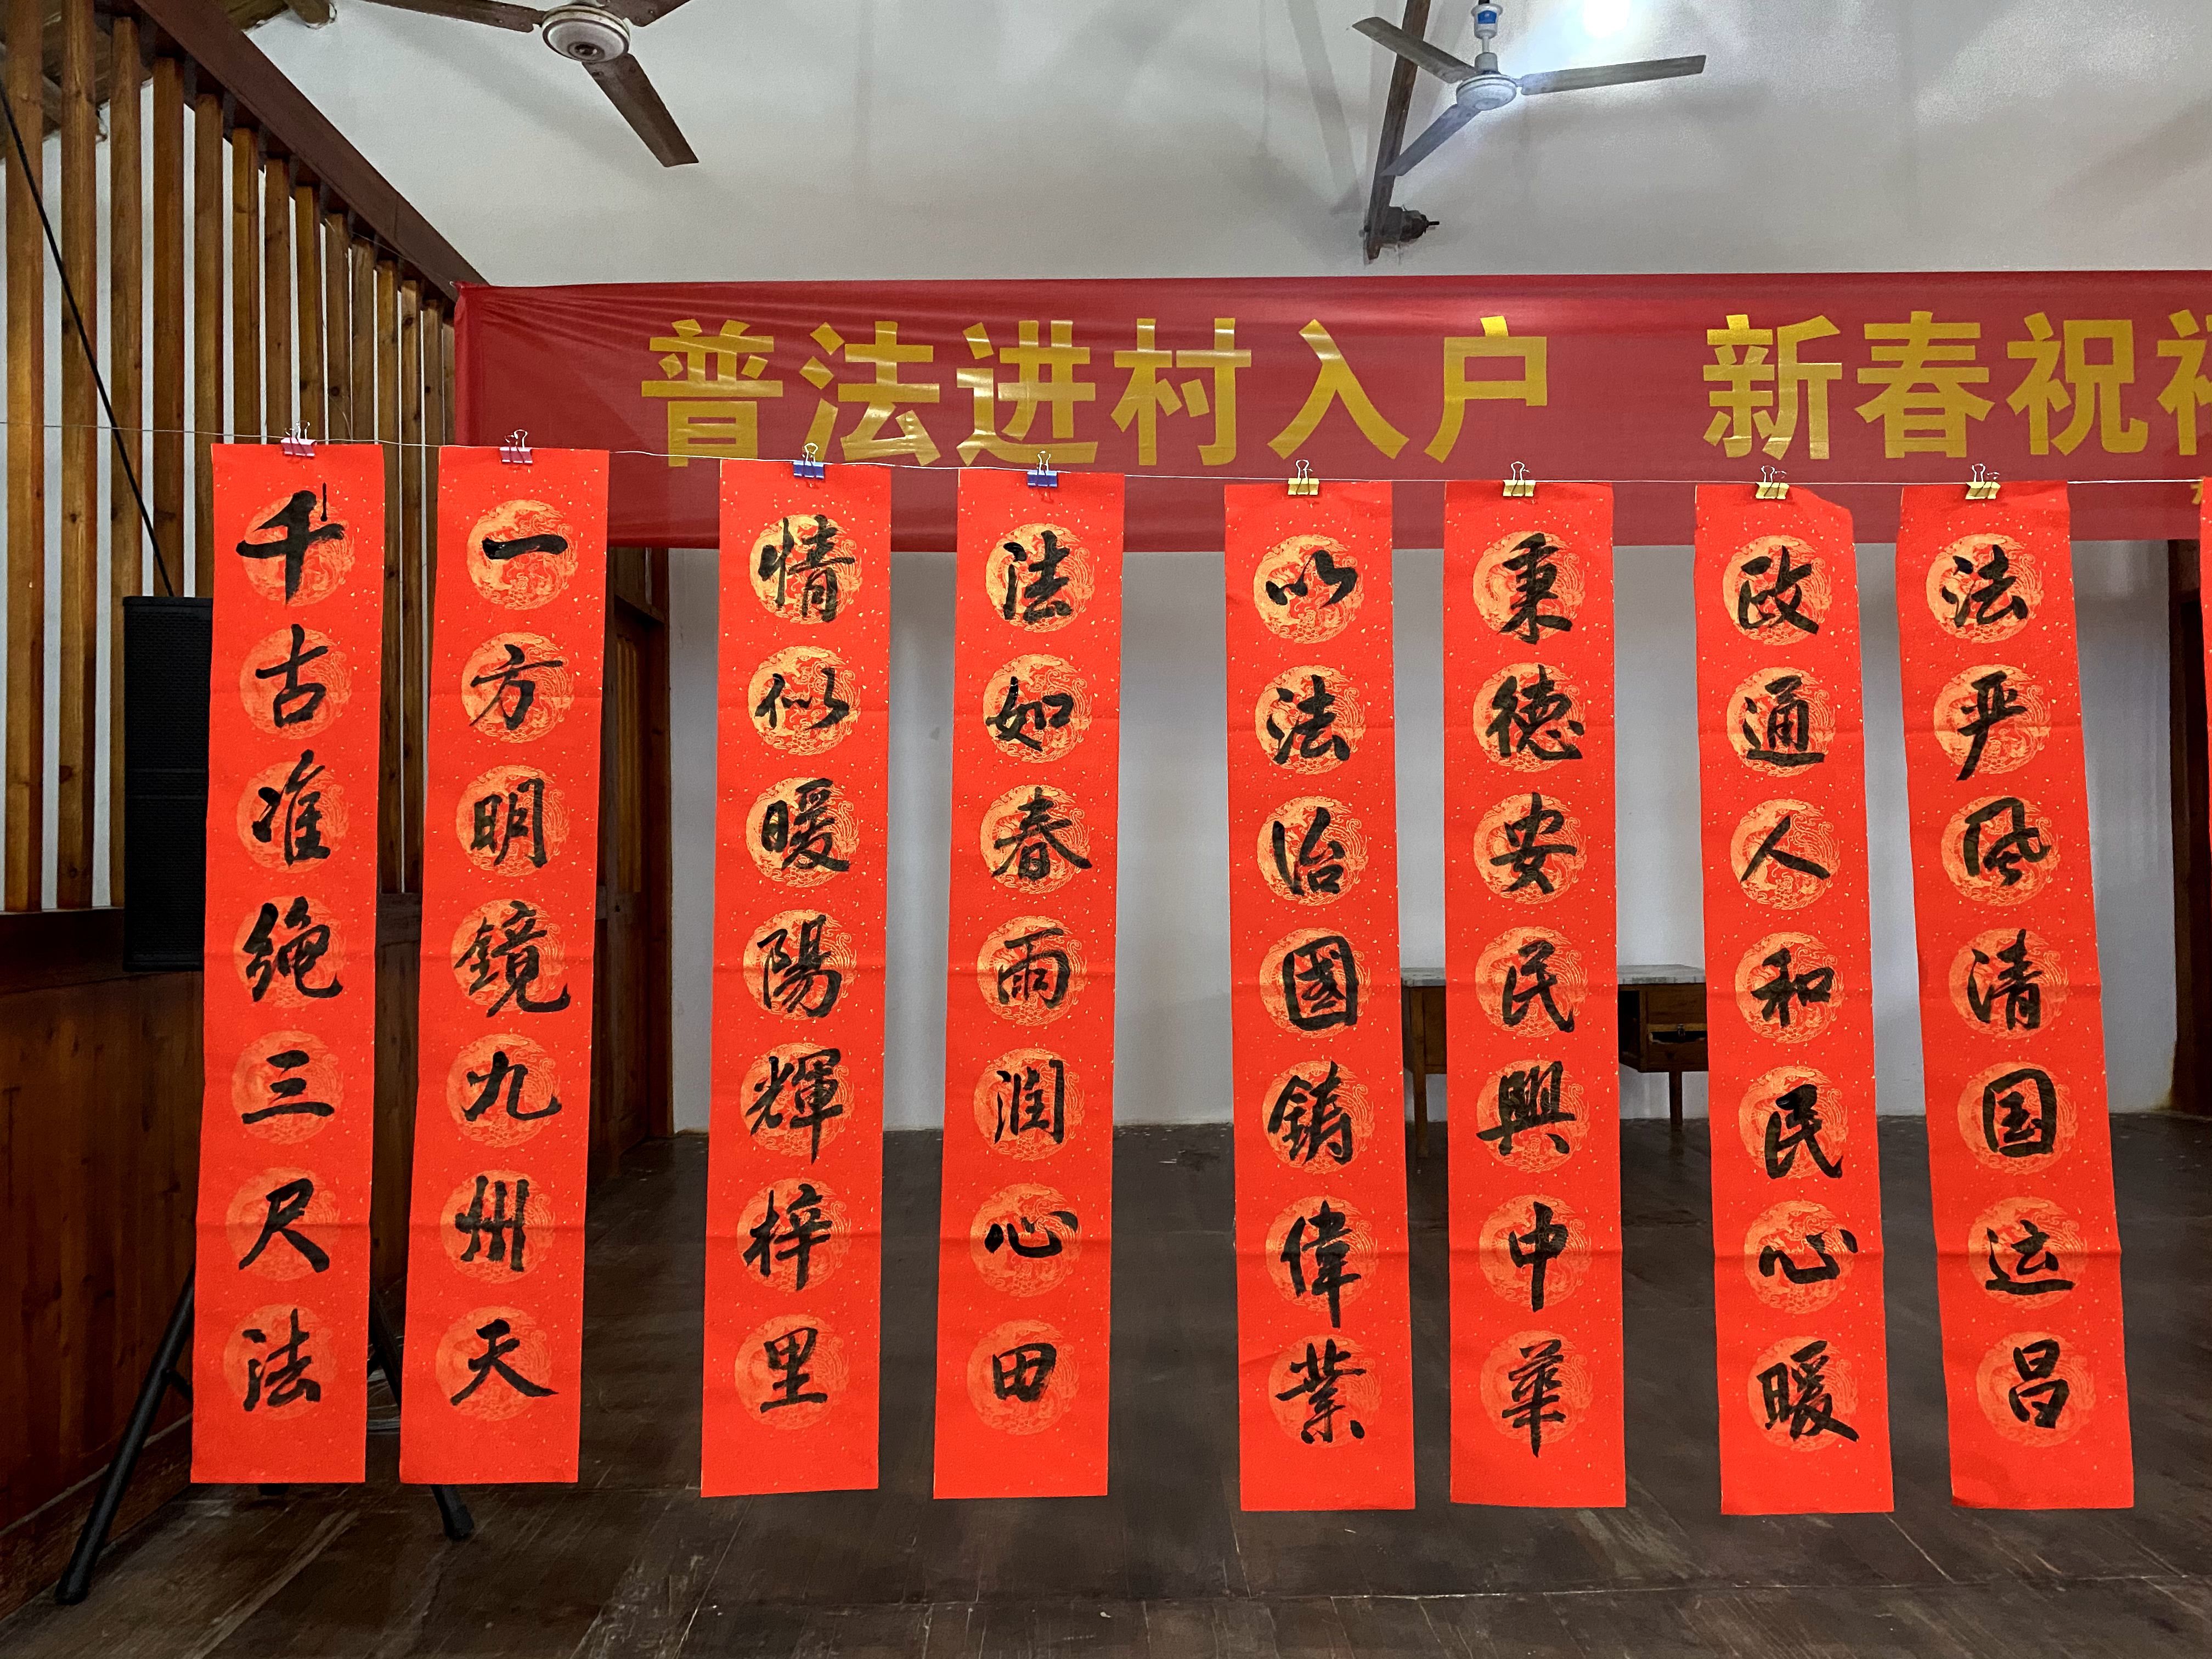 普法进村入户 新春祝
千古准绳三尺法
一方明鏡九州天
情似暖陽輝梓里
法如春雨润心田
以法治國鑄偉業
秉德安民興中華
政通人和民心暖
法严风清国运昌